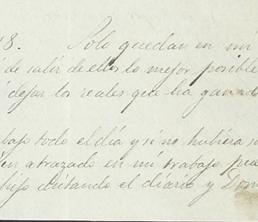 8. Solo quedan en mi
de salir de ellos lo mejor posible
dejar los reales que ha ganado
bajo todo el dia y si no hubiera
en atrazado en mi trabajo
hijo quitando el diario y